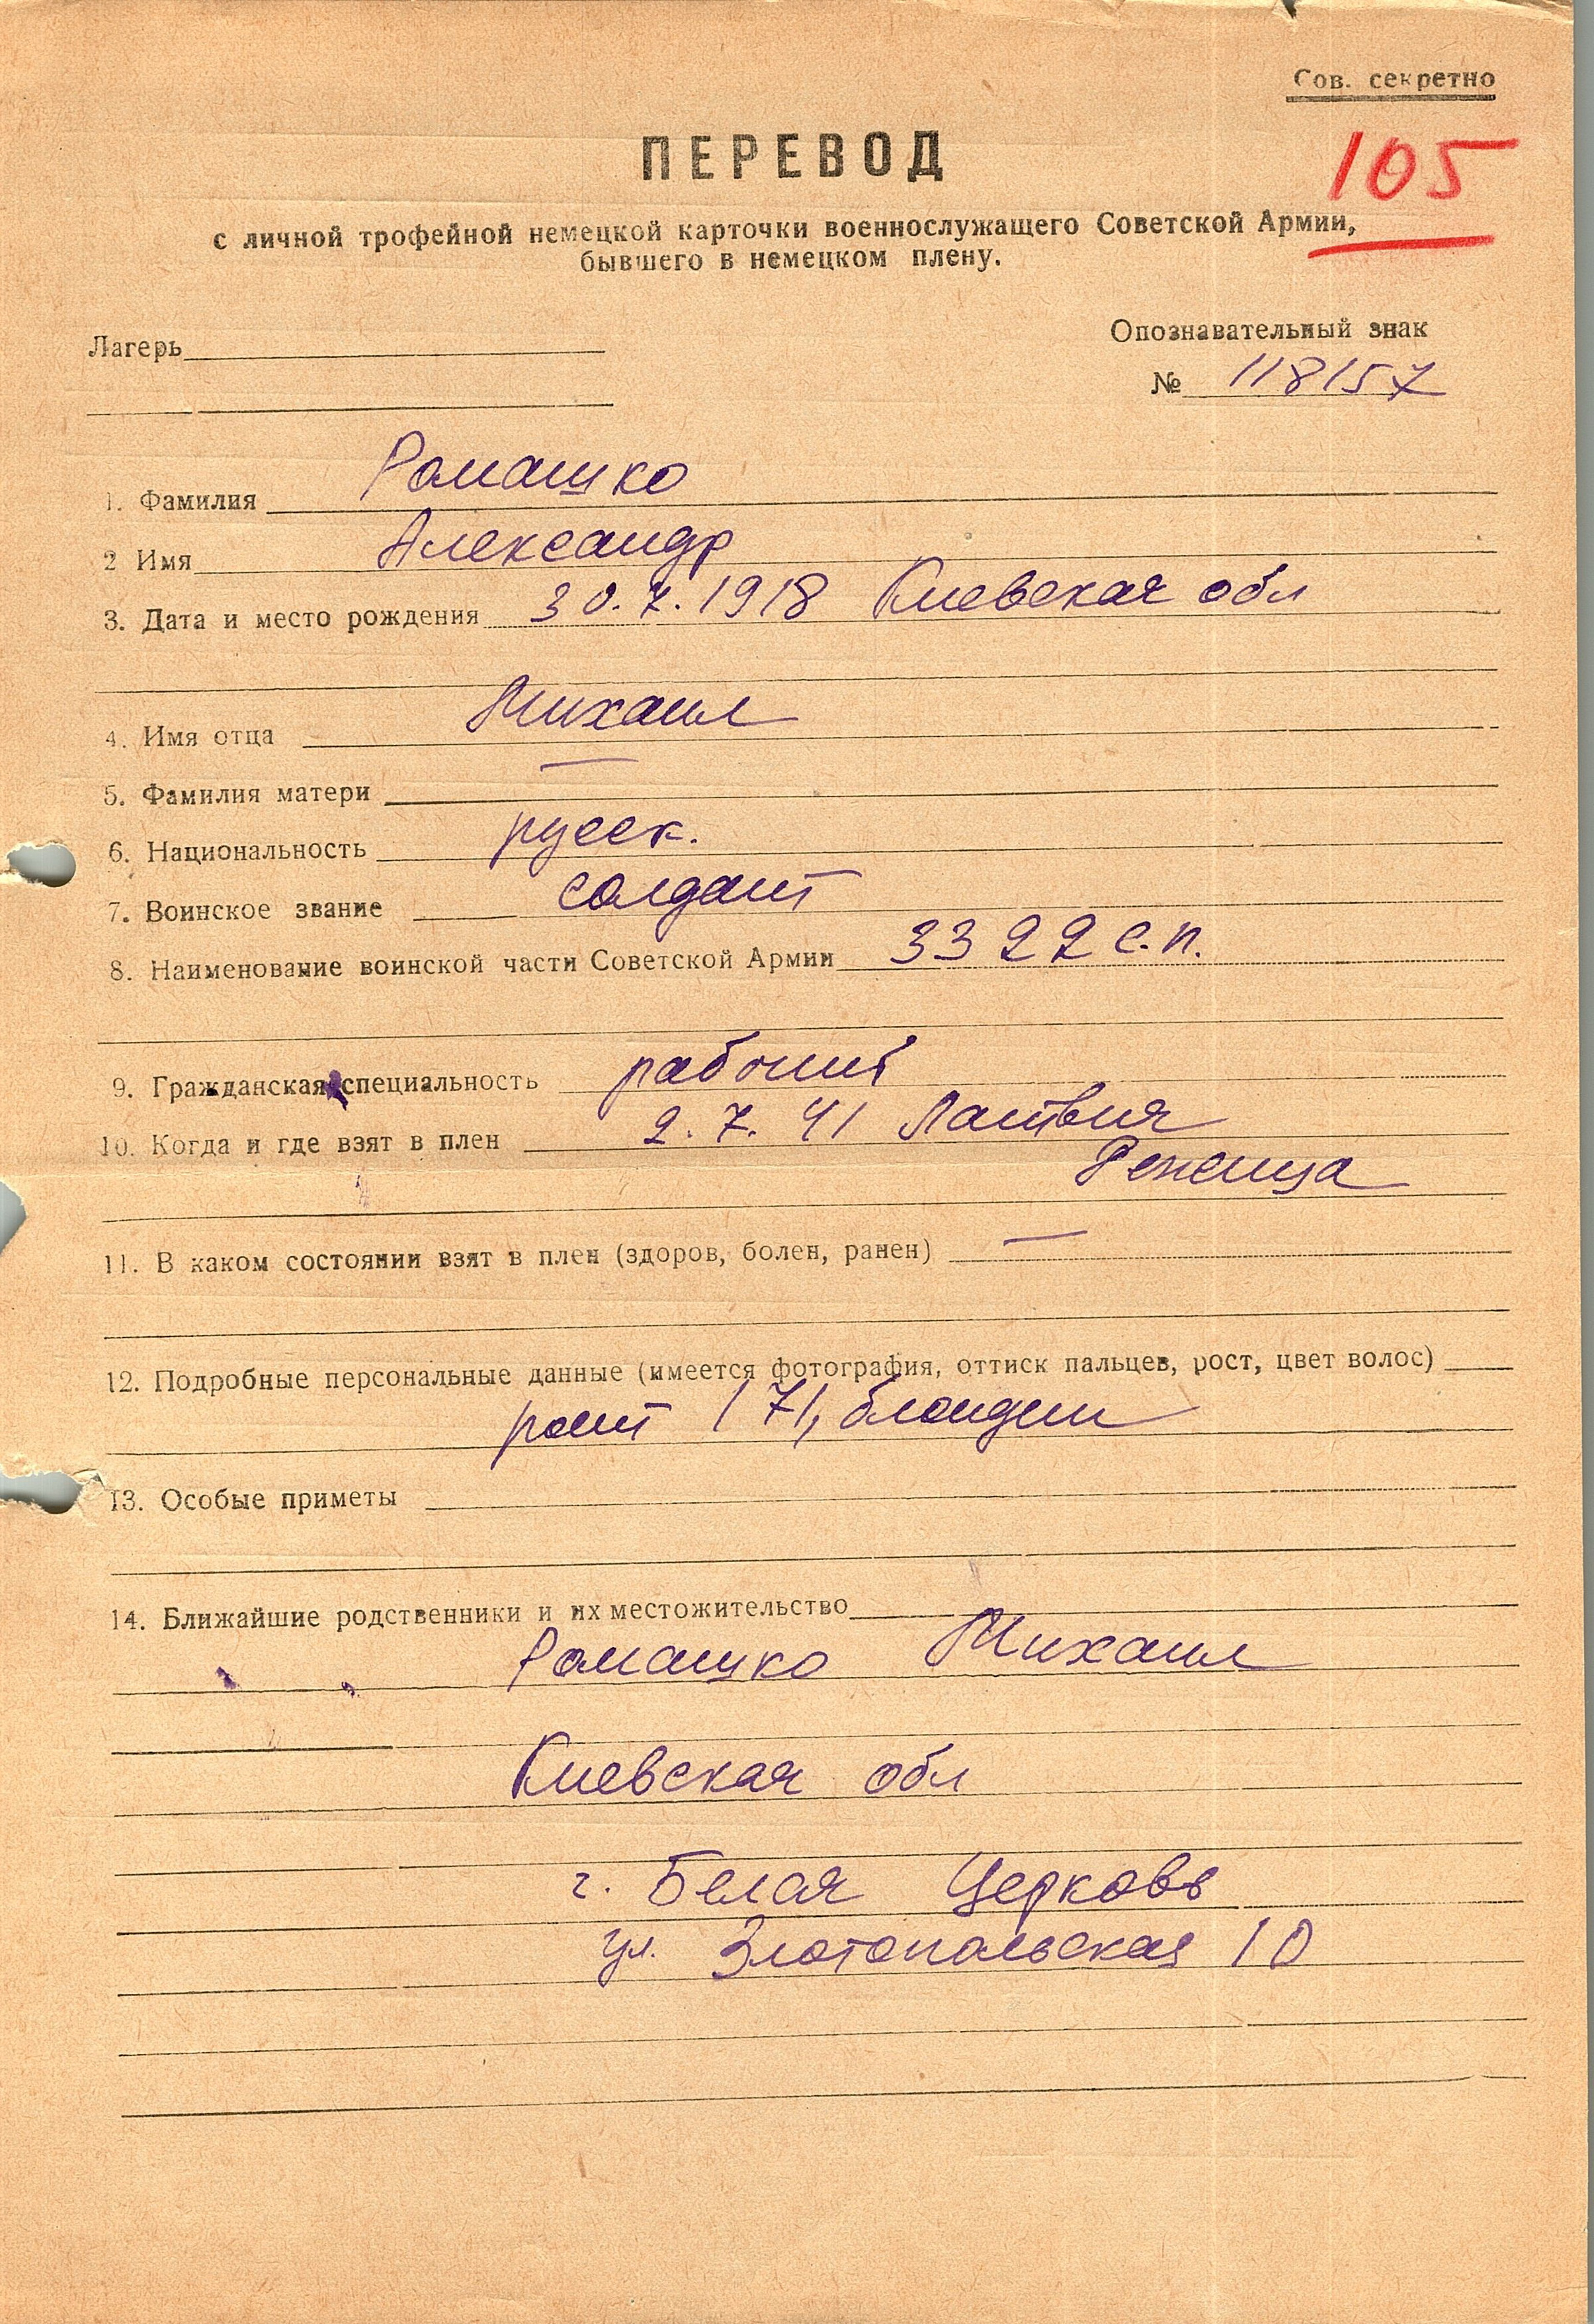 Сов. секретно
105
ПЕРЕВОД
с личной трофейной немецкой карточки военнослужащего Советской Армии,
бывшего в немецком плену.
Лагерь
Опознавательный знак
№ 118157
1. Фамилия Ромашко
2 Имя Александр
3. Дата и место рождения 30.7.1918 Киевская обл
4. Имя отца Михаил
5. Фамилия матери —
6. Национальность русск.
7. Воинское звание солдат
8. Наименование воинской части Советской Армии 3322 с.п.
9. Гражданская специальность рабочий
10. Когда и где взят в плен 2.7.41 Латвия
Режица
11. В каком состоянии взят в плен (здоров, болен, ранен) —
12. Подробные персональные данные (имеется фотография, оттиск пальцев, рост, цвет волос)
рост 171, блондин
13. Особые приметы
14. Ближайшие родственники и их местожительство
Ромашко Михаил
Киевская обл
г. Белая Церковь
ул. Златопольская 10